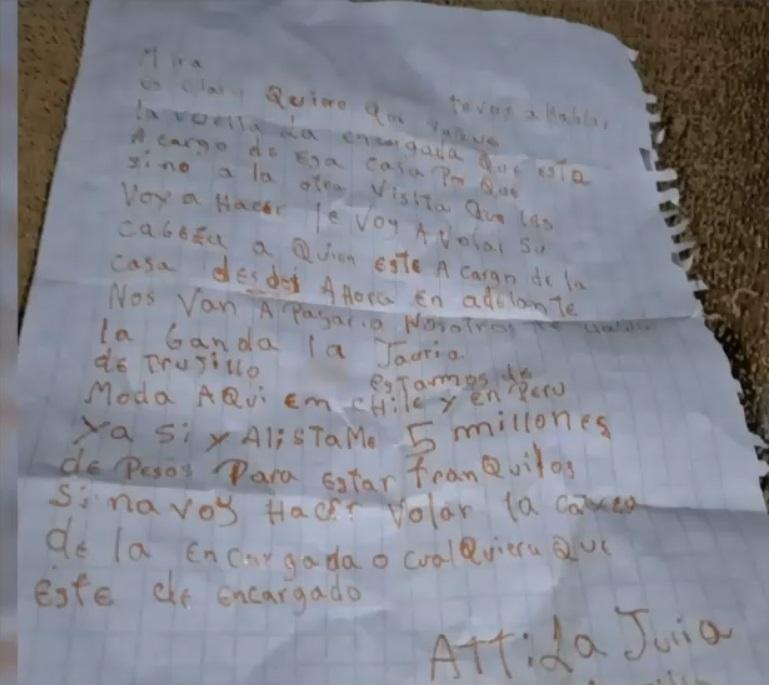 Mira
es claro Quiero que te vas a Hablar
la vuelta la encargada Que esta
A cargo de Esa casa Por Que
sino a la otra Visita Que les
Voy a Hacer le Voy A Volar Su
cabeza a Quien este A cargo de la
casa desdes AHora En adelante
Nos Van A Pagar a Nosotros te
la banda la Jauria
de TruJillo estamos de
Moda AQui Em CHile y en Peru
Ya Si y AlisTaMe 5 millones
de Pesos Para Estar TranQuilos
Si na voy Hacer Volar la
de la Encargada o cualQuiera QuE
EsTE de Encargado
ATTi La Juria